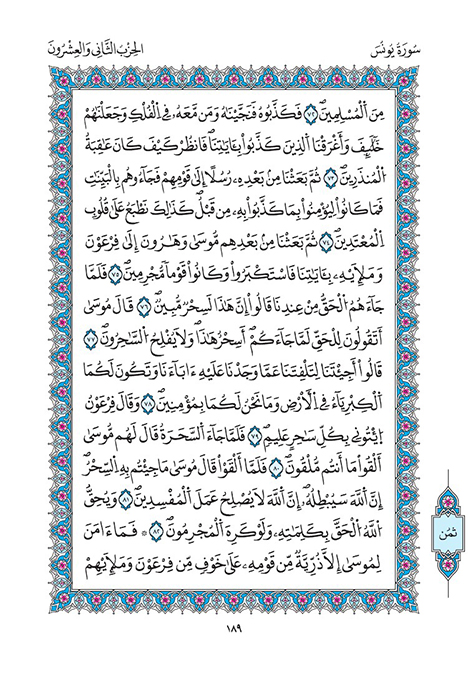 سُورَةُ يُونُسَ
الحِزْبُ الثَّانِي وَالْعِشْرُونَ
مِنَ اَ۬لْمُسْلِمِينَۖ ٧٢ فَكَذَّبُوهُ فَنَجَّيْنَٰهُ وَمَن مَّعَهُۥ فِے اِ۬لْفُلْكِ وَجَعَلْنَٰهُمْ
خَلَٰٓئِفَ وَأَغْرَقْنَا اَ۬لذِينَ كَذَّبُواْ بِـَٔايَٰتِنَاۖ فَانظُرْ كَيْفَ كَانَ عَٰقِبَةُ
اُ۬لْمُنذَرِينَۖ ٧٣ ثُمَّ بَعَثْنَا مِنۢ بَعْدِهِۦ رُسُلاً إِلَىٰ قَوْمِهِمْ فَجَآءُوهُم بِالْبَيِّنَٰتِ
فَمَا كَانُواْ لِيُؤْمِنُواْ بِمَا كَذَّبُواْ بِهِۦ مِن قَبْلُۖ كَذَٰلِكَ نَطْبَعُ عَلَىٰ قُلُوبِ
اِ۬لْمُعْتَدِينَۖ ٧٤ ثُمَّ بَعَثْنَا مِنۢ بَعْدِهِم مُّوسَىٰ وَهَٰرُونَ إِلَىٰ فِرْعَوْنَ
وَمَلَإِيْهِۦ بِـَٔايَٰتِنَا فَاسْتَكْبَرُواْ وَكَانُواْ قَوْماً مُّجْرِمِينَۖ ٧٥ فَلَمَّا
جَآءَهُمُ اُ۬لْحَقُّ مِنْ عِندِنَا قَالُوٓاْ إِنَّ هَٰذَا لَسِحْرٌ مُّبِينٌۖ ٧٦ قَالَ مُوسَىٰٓ
أَتَقُولُونَ لِلْحَقِّ لَمَّا جَآءَكُمُۥٓ أَسِحْرٌ هَٰذَاۖ وَلَا يُفْلِحُ اُ۬لسَّٰحِرُونَۖ ٧٧
قَالُوٓاْ أَجِئْتَنَا لِتَلْفِتَنَا عَمَّا وَجَدْنَا عَلَيْهِ ءَابَآءَنَا وَتَكُونَ لَكُمَا
اَ۬لْكِبْرِيَآءُ فِے اِ۬لَارْضِ وَمَا نَحْنُ لَكُمَا بِمُؤْمِنِينَۖ ٧٨ وَقَالَ فِرْعَوْنُ
اُ۪يتُونِے بِكُلِّ سَٰحِرٍ عَلِيمٖۖ ٧٩ فَلَمَّا جَآءَ اَ۬لسَّحَرَةُ قَالَ لَهُم مُّوسَىٰٓ
أَلْقُواْ مَآ أَنتُم مُّلْقُونَۖ ٨٠ فَلَمَّآ أَلْقَوْاْ قَالَ مُوسَىٰ مَا جِئْتُم بِهِ اِ۬لسِّحْرُۖ
إِنَّ اَ۬للَّهَ سَيُبْطِلُهُۥٓۖ إِنَّ اَ۬للَّهَ لَا يُصْلِحُ عَمَلَ اَ۬لْمُفْسِدِينَۖ ٨١ وَيُحِقُّ
اُ۬للَّهُ اُ۬لْحَقَّ بِكَلِمَٰتِهِۦ وَلَوْ كَرِهَ اَ۬لْمُجْرِمُونَۖ ٨٢ ۞ فَمَآ ءَامَنَ
لِمُوسَىٰٓ إِلَّا ذُرِّيَّةٌ مِّن قَوْمِهِۦ عَلَىٰ خَوْفٍ مِّن فِرْعَوْنَ وَمَلَإِيْهِمُۥٓ
ثُمُن
١٨٩